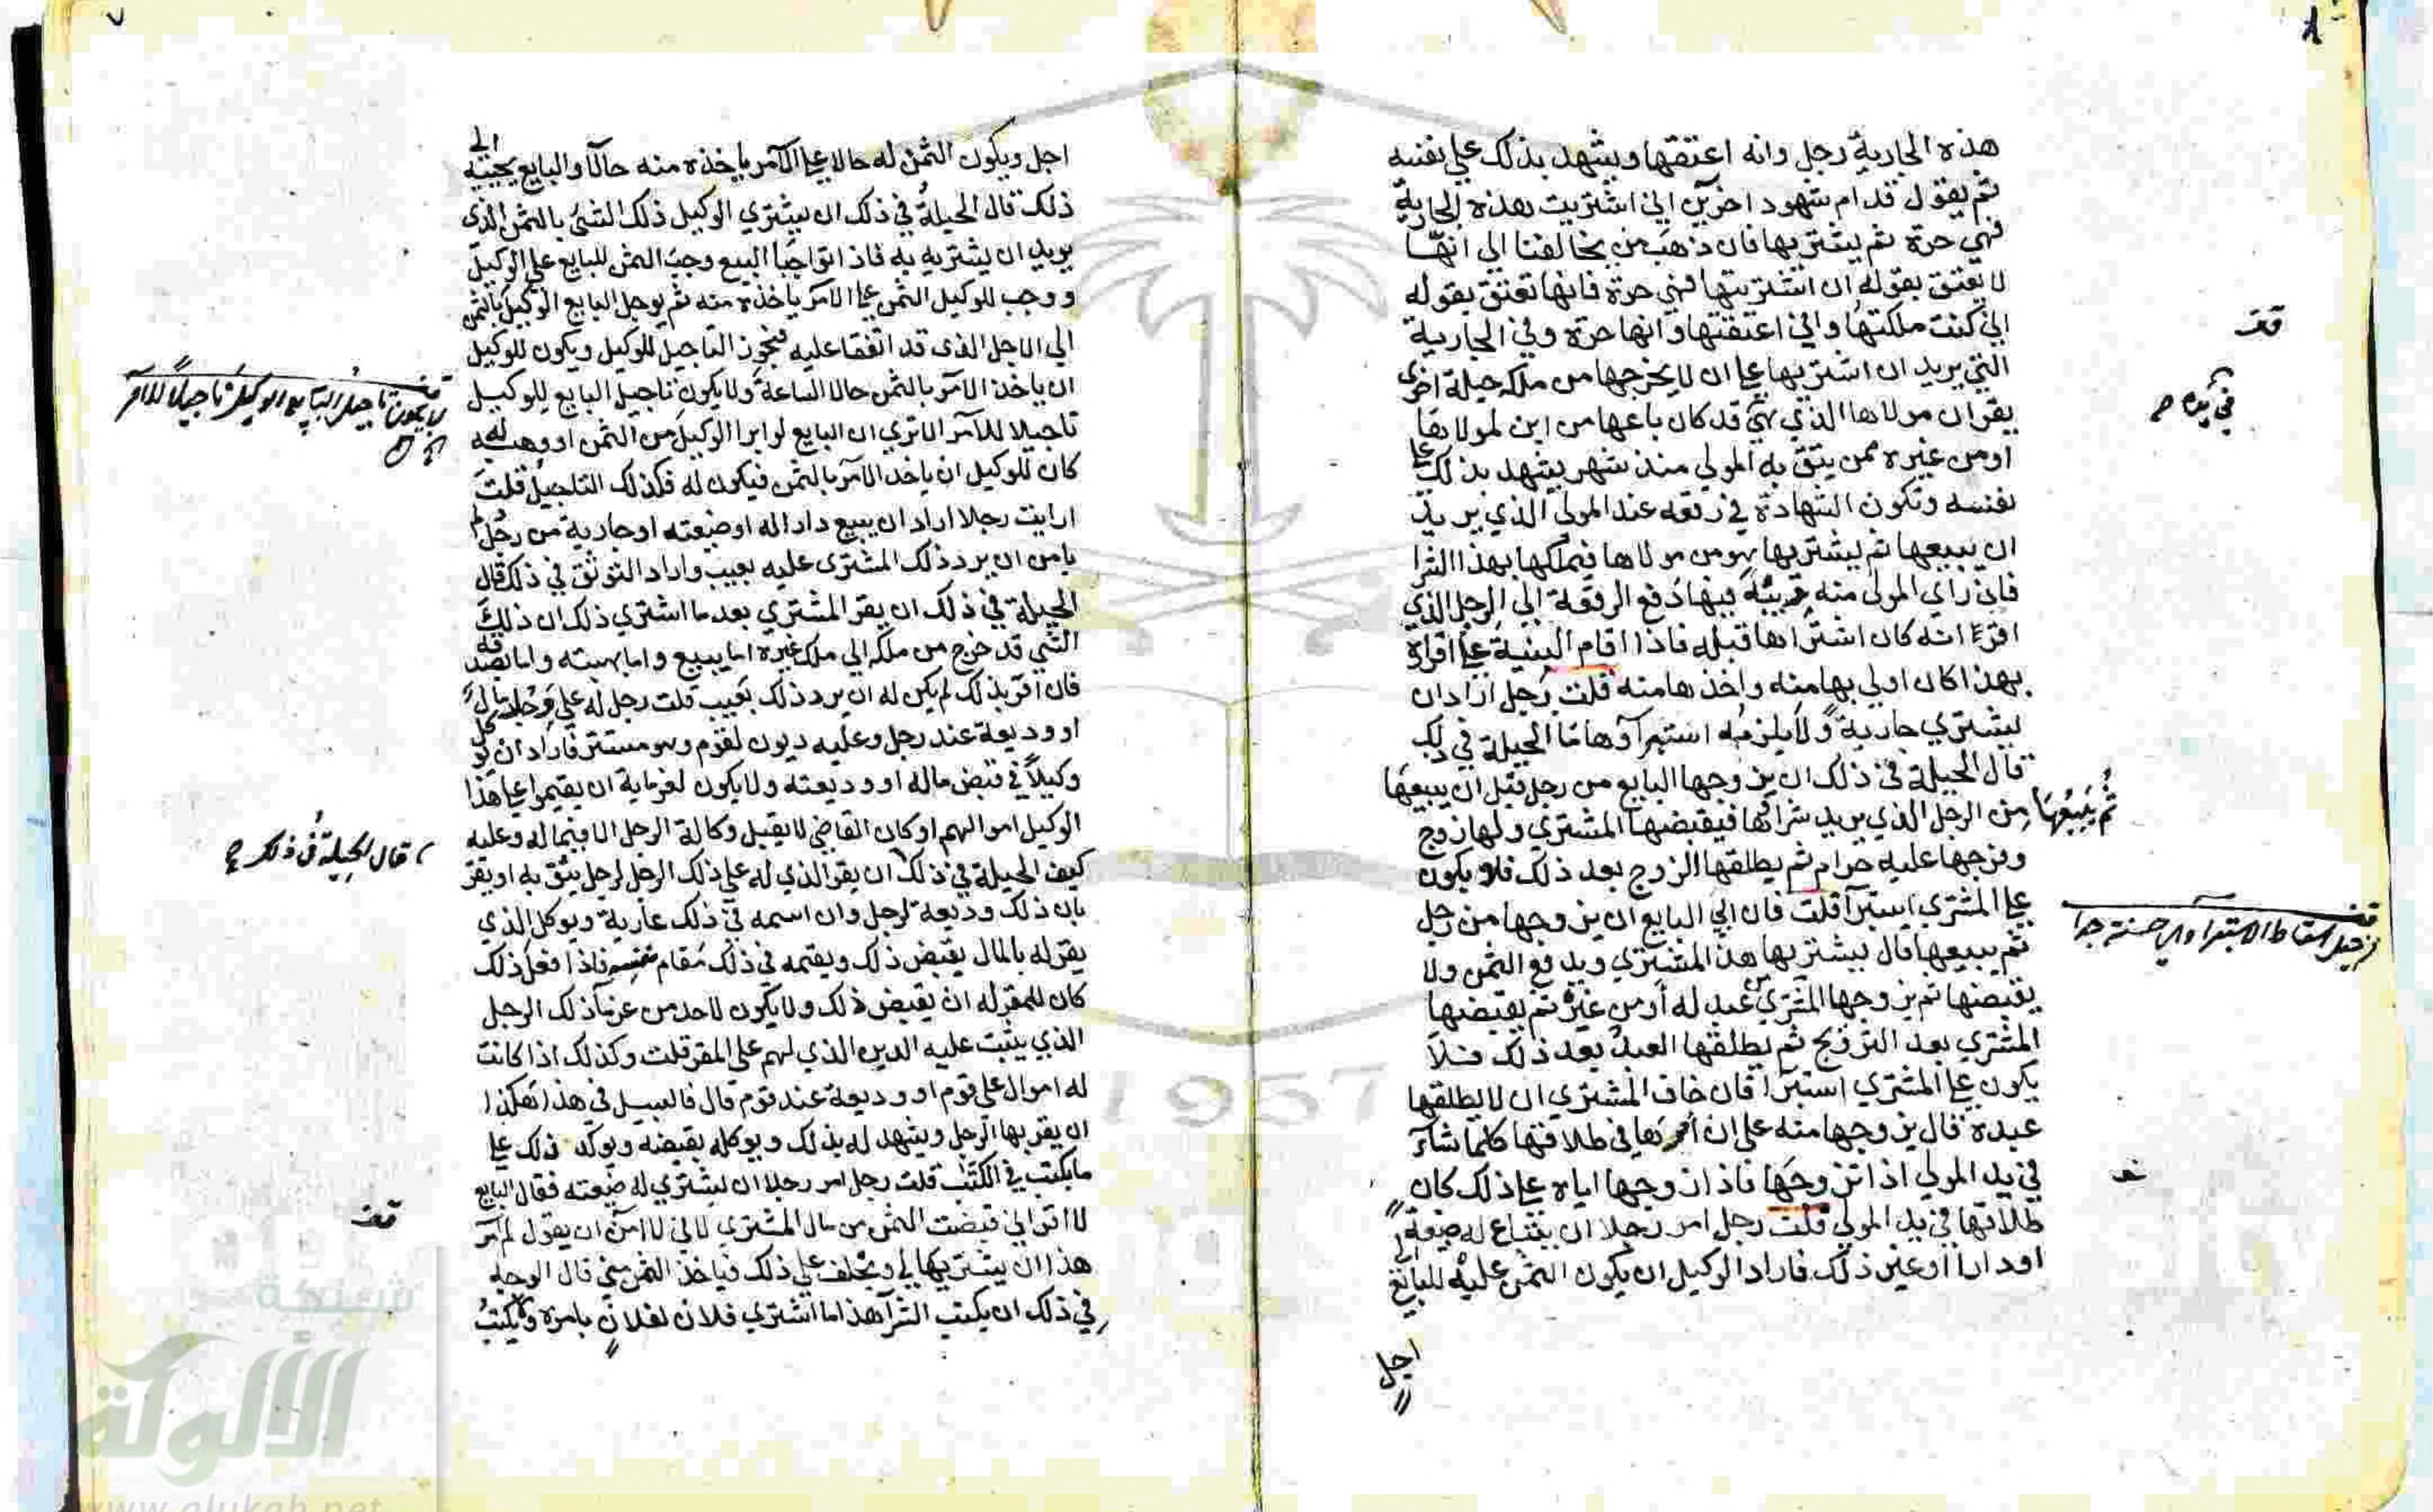 ٨
هذه الجارية رجل وانه اعتقها ويشهد بذلك علي نفسه
ثم يقول قدام شهود اخرين اني اشتريت هذه الجارية
فهي حرة ثم يشتريها فان ذهب من يخالفنا الى انها
لا تعتق بقوله ان اشتريتها فهي حرة فانها تعتق بقوله
اني كنت ملكتها واني اعتقتها وانها حرة وفي الجارية
التي يريد ان اشتريها على ان لا يخرجها من ملكه حيلة اخرى
يقر ان مولاها الذي هي قد كان باعها من ابن لمولاها
او من غيره ممن يثق به المولي منذ شهر يشهد بذلك على
نفسه وتكون الشهادة في رقعه عند المولى الذي يريد
ان يبيعها ثم يشتريها هو من مولاها فيملكها بهذا الشرا
فان راي المولى منه فيها دفع الرقعة الي الرجل الذي
اقر انه كان اشتراها قبله فاذا اقام البينة على اقراره
بهذا كان اولي بها منه واخذها منه قلت رجل اراد ان
يشتري جارية ولا يلزمه استبرآوها ما الحيلة في ذلك
قال الحيلة في ذلك ان يزوجها البايع من رجل قبل ان يبيعها
ثم يبيعها من الرجل الذي يريد شراءها فيقبضها المشتري ولها زوج
وفرجها عليه حرام ثم يطلقها الزوج بعد ذلك فلا يكون
على المشتري استبرآ قلت فان ابي البايع ان يزوجها من رجل
ثم يبيعها قال يشتريها هذا المشتري ويدفع الثمن ولا
يقبضها ثم يزوجها المشتري من عبد له او من غيره ثم يقبضها
المشتري بعد التزويج ثم يطلقها العبد بعد ذلك فلا
يكون على المشتري استبرآ قان خاف المشتري ان لا يطلقها
عبده قال يزوجها منه على ان امرها في طلاقها كلما شاء
في يد المولي اذا تزوجها فاذا زوجها اياه على ذلك كان
طلاقها في يد المولي قلت رجل امر رجلا ان يبتاع له ضيعة
او دارا او غير ذلك فاراد الوكيل ان يكون الثمن عليه للبايع الى
اجل
قف
في يده
قف
٧
اجل ويكون الثمن له حالا على الآمر ياخذه منه حالا والبايع يجيبه الى
ذلك قال الحيلة في ذلك ان يشتري الوكيل ذلك الشئ بالثمن الذى
يريد ان يشتريه به فاذا تواجبا البيع وجب الثمن للبايع على الوكيل
ووجب للوكيل الثمن على الآمر ياخذه منه ثم يوجل البايع الوكيل بالثمن
الي الاجل الذى قد اتفقا عليه فيجوز التاجيل للوكيل ويكون للوكيل
ان ياخذ الآمر بالثمن حالا الساعة ولا يكون تاجيل البايع للوكيل
تاجيلا للآمر الا تري ان البايع لو ابرا الوكيل من الثمن او وهبه له
كان للوكيل ان ياخذ الآمر بالثمن فيكون له فكذلك التاجيل قلت
ارايت رجلا اراد ان يبيع دارا له او ضيعته او جارية من رجل لم
يامن ان يرد ذلك المشترى عليه بعيب واراد التوثق في ذلك قال
الحيلة في ذلك ان يقر المشتري بعد ما اشتري ذلك ان ذلك
الشي قد خرج من ملكه الي ملك غيره اما ببيع واما بهبته واما بصدقه
فان اقر بذلك لم يكن له ان يرد ذلك بعيب قلت رجل له على رجل مال
او وديعة عند رجل وعليه ديون لقوم وهو مستتر فاراد ان يوكل
وكيلا في قبض ماله او وديعته ولا يكون لغرمايه ان يقيموا على هذا
الوكيل اموالهم او كان القاضي لا يقبل وكالة الرجل الا فيما له وعليه
كيف الحيلة في ذلك ان يقر الذي له على ذلك الرجل لرجل يثق به او يقر
بان ذلك وديعة لرجل وان اسمه في ذلك عارية ويوكل الذي
يقر له بالمال يقبض ذلك ويقيمه في ذلك مقام نفسه فاذا فعل ذلك
كان للمقر له ان يقبض ذلك ولا يكون لاحد من غرمآ ذلك الرجل
الذي يثبت عليه الدين الذي لهم على المقر قلت وكذلك اذا كانت
له اموال على قوم او وديعة عند قوم قال فالسبيل في هذا هكذا
ان يقر بها الرجل ويشهد له بذلك ويوكله بقبضه ويوكد ذلك على
ما يكتب في الكتب قلت رجل امر رجلا ان يشتري له ضيعته فقال البايع
لا اقر اني قبضت الثمن من مال المشتري لاني لا آمن ان يقول لم آمر
هذا ان يشتريها لي ويحلف على ذلك فياخذ الثمن مني قال الوجه
في ذلك ان يكتب الشرآ هذا ما اشتري فلان لفلان بامره ولا يكتب
قف
لا يكون تاجيل البايع الوكيل تاجيلا للآمر
قال الحيلة في ذلك
قف
شبكة
الألوكة
www.alukah.net
1957